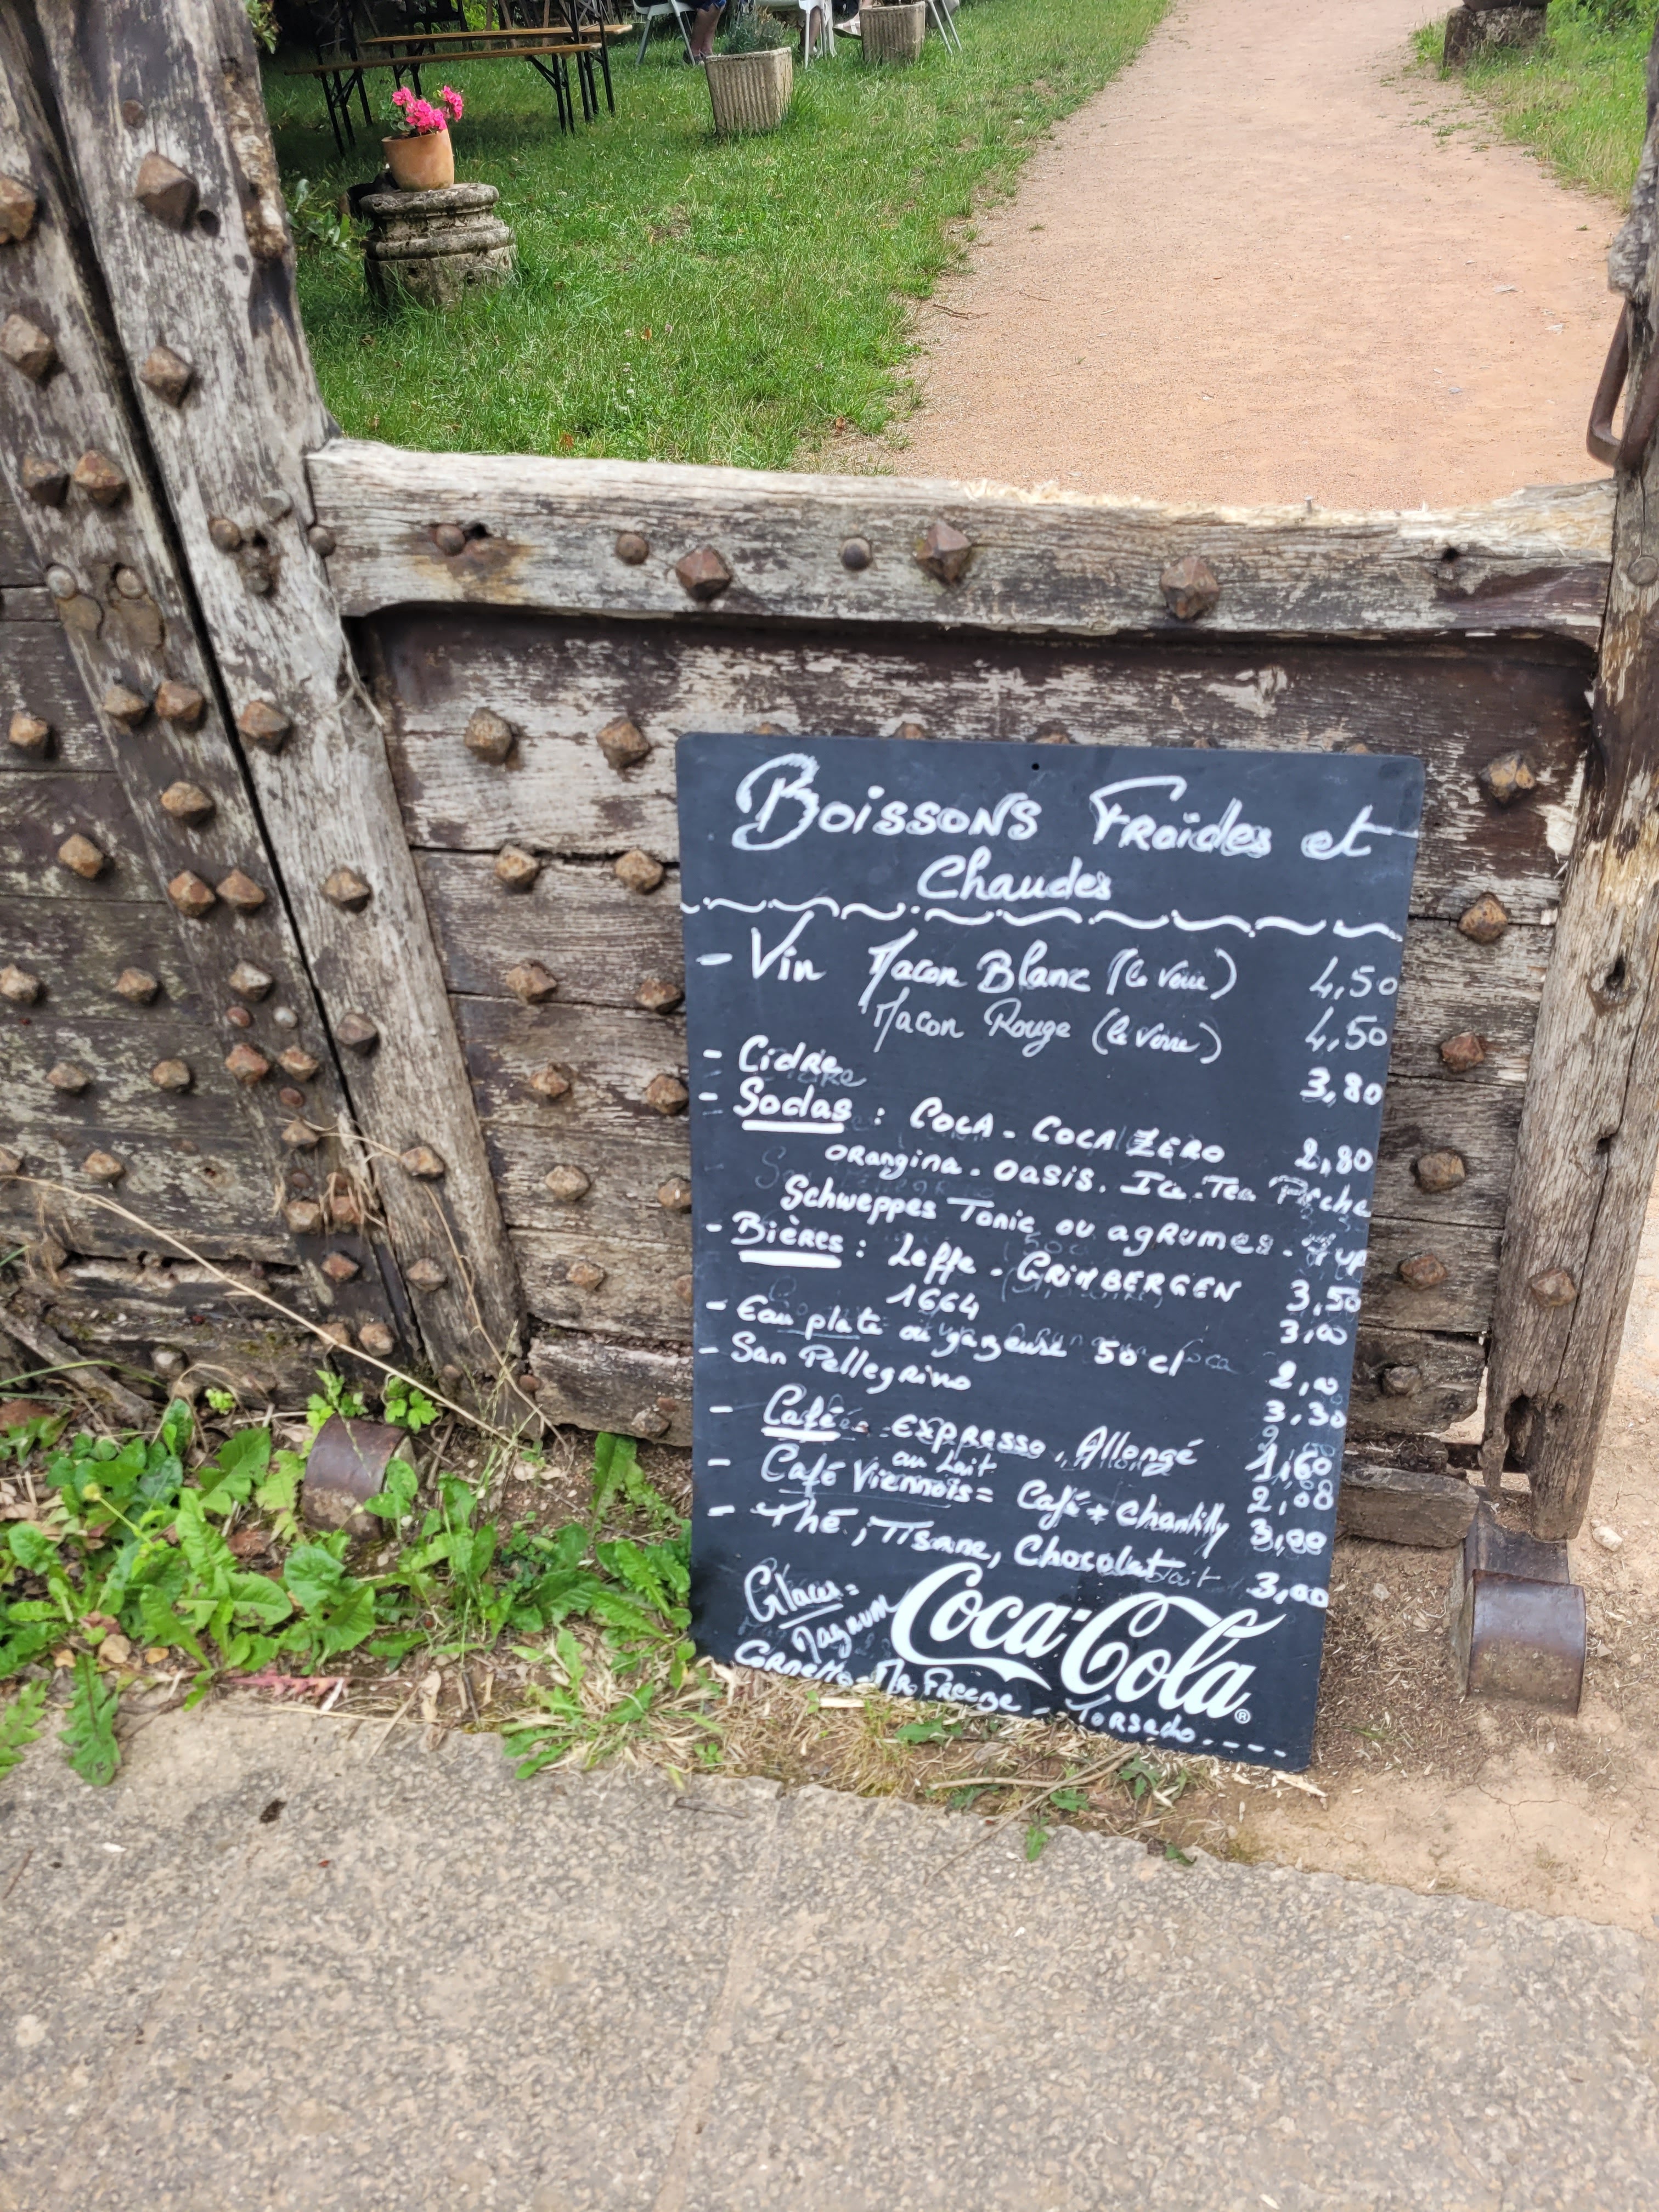 Boissons Froides et
Chaudes
- Vin Macon Blanc (le verre) 4,50
Macon Rouge (le verre) 4,50
- Cidre 3,80
- Sodas : Coca - Coca Zero 2,80
Orangina - Oasis. Ice-Tea Pêche
Schweppes Tonic ou agrumes - 7 up
- Bières : Leffe - GRIMBERGEN 3,50
1664 3,00
- Eau plate ou gazeuse 50 cl 2,00
- San Pellegrino 3,30
- Café = Expresso, Allongé 1,60
au lait 2,00
- Café Viennois = Café + Chantilly 3,00
- Thé, Tisane, Chocolat 3,00
Glaces =
Magnum
Coca-Cola®
Cornetto - Mr Freeze - Torsado . - - - -